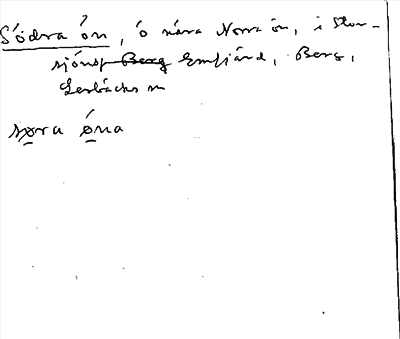 Södra ön, ö nära Norra ön, i Stor-
sjöns Berg Emfjärd, Berg,
Gerbäcks m
søra óna